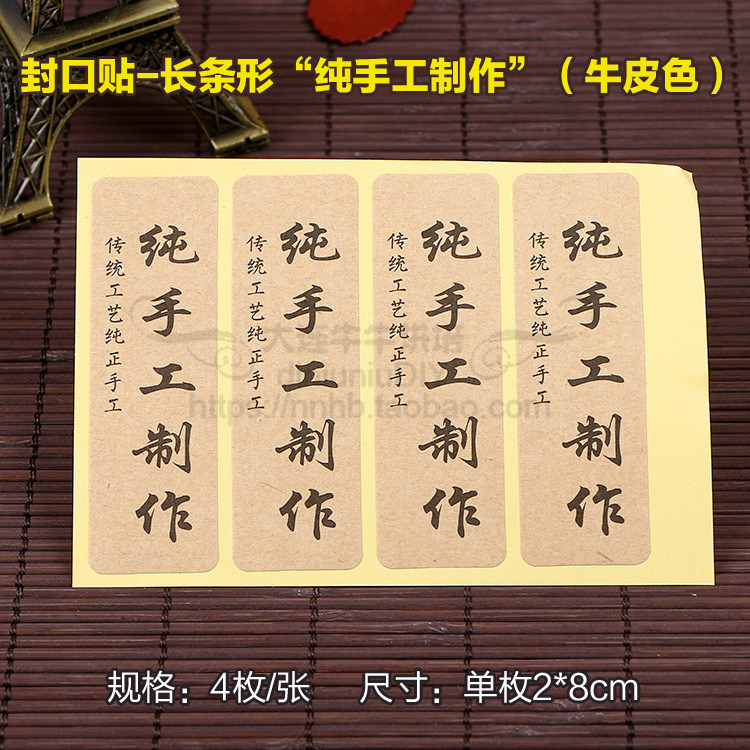 封口贴-长条形“纯手工制作”（牛皮色）
纯手工制作
传统工艺纯正手工
纯手工制作
传统工艺纯正手工
纯手工制作
传统工艺纯正手工
纯手工制作
传统工艺纯正手工
大连牛牛烘焙
https://nnhb.taobao.com
规格：4枚/张 尺寸：单枚2*8cm